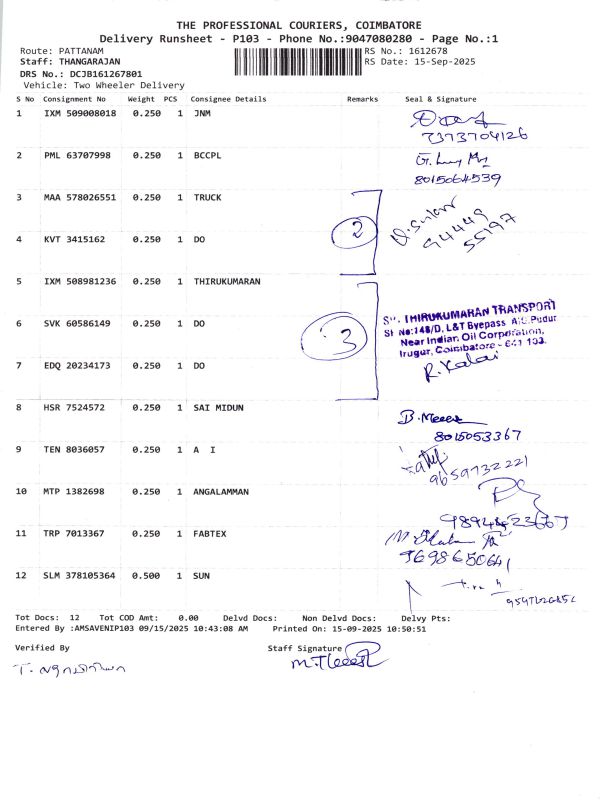 THE PROFESSIONAL COURIERS, COIMBATORE
Delivery Runsheet - P103 - Phone No.:9047080280 - Page No.:1
Route: PATTANAM RS No.: 1612678
Staff: THANGARAJAN RS Date: 15-Sep-2025
DRS No.: DCJB161267801
Vehicle: Two Wheeler Delivery
S No Consignment No Weight PCS Consignee Details Remarks Seal & Signature
1 IXM 509008018 0.250 1 JNM
7373704126
2 PML 63707998 0.250 1 BCCPL
8015064539
3 MAA 578026551 0.250 1 TRUCK
2
94449
55197
4 KVT 3415162 0.250 1 DO
5 IXM 508981236 0.250 1 THIRUKUMARAN
THIRUKUMARAN TRANSPORT
Sf No:148/D, L&T Byepass A.G.Pudur
6 SVK 60586149 0.250 1 DO
3
Near Indian Oil Corporation,
Irugur, Coimbatore - 641 103.
R. Kalai
7 EDQ 20234173 0.250 1 DO
8 HSR 7524572 0.250 1 SAI MIDUN
8015053367
9 TEN 8036057 0.250 1 A I
9659732221
10 MTP 1382698 0.250 1 ANGALAMMAN
11 TRP 7013367 0.250 1 FABTEX
9698650641
12 SLM 378105364 0.500 1 SUN
Tot Docs: 12 Tot COD Amt: 0.00 Delvd Docs: Non Delvd Docs: Delvy Pts:
Entered By :AMSAVENIP103 09/15/2025 10:43:08 AM Printed On: 15-09-2025 10:50:51
Verified By Staff Signature